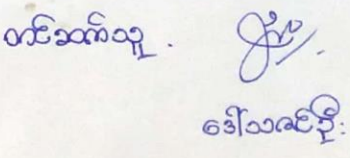 တင်ဆက်သူ .
ဒေါ်သဇင်ဦး